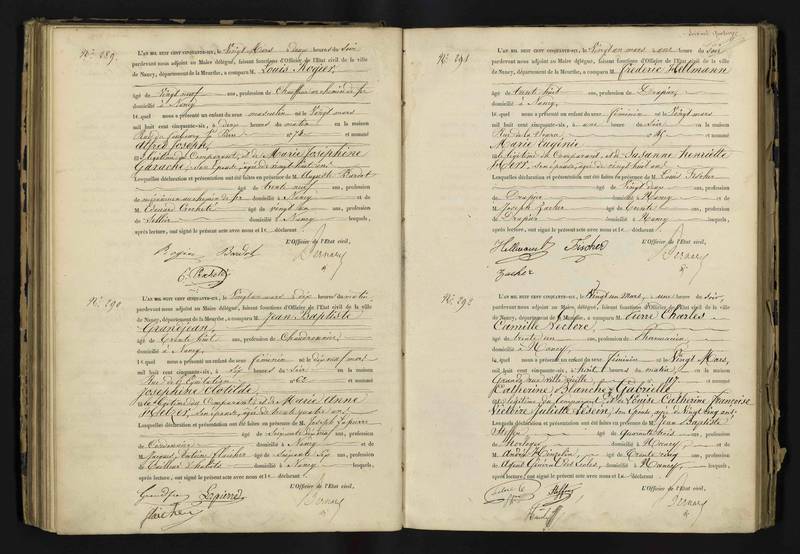 N° 289.
L'AN MIL HUIT CENT CINQUANTE-SIX, le Vingt Mars deux heures du Soir
pardevant nous adjoint au Maire délégué, faisant fonctions d'Officier de l'Etat civil de la ville
de Nancy, département de la Meurthe, a comparu M. Louis Rogier,
âgé de Vingt neuf ans, profession de Chauffeur au chemin de fer
domicilié à Nancy
lequel nous a présenté un enfant du sexe masculin né le Vingt mars
mil huit cent cinquante-six, à deux heures du matin en la maison
Rue du faubourg St Pierre n° et nommé
Alfred Joseph,
fils légitime du Comparant, et de Marie Joséphine
son épouse, âgée de vingt huit ans.
Lesquelles déclaration et présentation ont été faites en présence de M. Auguste
âgé de trente neuf ans, profession
de mécanicien au chemin de fer domicilié à Nancy et de
M. Edouard âgé de vingt un ans, profession
de Sellier domicilié à Nancy lesquels,
après lecture, ont signé le présent acte avec nous et le déclarant
L'Officier de l'Etat civil,
Rogier Bardot Bernard
N° 290
L'AN MIL HUIT CENT CINQUANTE-SIX, le Vingt un mars dix heures du matin,
pardevant nous adjoint au Maire délégué, faisant fonctions d'Officier de l'Etat civil de la ville
de Nancy, département de la Meurthe, a comparu M. Jean Baptiste
Grandjean,
âgé de trente huit ans, profession de Chaudronnier
domicilié à Nancy,
lequel nous a présenté un enfant du sexe féminin né le dix neuf mars
mil huit cent cinquante-six, à six heures du soir en la maison
Rue de l'Equitation n° 62 et nommé
Joséphine Clotilde
fille légitime du Comparant, et de Marie Anne
son épouse, âgée de trente quatre ans.
Lesquelles déclaration et présentation ont été faites en présence de M. Joseph
âgé de Soixante dix neuf ans, profession
de Cordonnier domicilié à Nancy et de
M. Jacques Antoine âgé de Soixante six ans, profession
de Tailleur d'habits domicilié à Nancy lesquels,
après lecture, ont signé le présent acte avec nous et le déclarant
L'Officier de l'Etat civil,
Bernard
N° 291
L'AN MIL HUIT CENT CINQUANTE-SIX, le Vingt un mars une heure du soir
pardevant nous adjoint au Maire délégué, faisant fonctions d'Officier de l'Etat civil de la ville
de Nancy, département de la Meurthe, a comparu M. Frédéric Hellmann
âgé de trente huit ans, profession de Drapier,
domicilié à Nancy,
lequel nous a présenté un enfant du sexe féminin né le Vingt mars
mil huit cent cinquante-six, à une heure du Soir en la maison
Rue de la n° et nommé
Marie Eugénie
fille légitime du Comparant et de Susanne Henriette
son épouse, âgée de vingt huit ans
Lesquelles déclaration et présentation ont été faites en présence de M. Louis Fischer
âgé de Vingt deux ans, profession
de Drapier domicilié à Nancy et de
M. Joseph Zacher âgé de trente ans, profession
de Drapier domicilié à Nancy lesquels,
après lecture, ont signé le présent acte avec nous et le déclarant
L'Officier de l'Etat civil,
Hellmann Fischer Bernard
Zacher
N° 292
L'AN MIL HUIT CENT CINQUANTE-SIX, le Vingt un Mars, une heure du Soir,
pardevant nous adjoint au Maire délégué, faisant fonctions d'Officier de l'Etat civil de la ville
de Nancy, département de la Meurthe, a comparu M. Pierre Charles
Camille Leclere
âgé de trente un ans, profession de Pharmacien
domicilié à Nancy
lequel nous a présenté un enfant du sexe féminin né le Vingt Mars,
mil huit cent cinquante-six, à huit heures du matin en la maison
Grande rue ville vieille n° et nommé
Catherine Blanche Gabrielle
fille légitime du Comparant et de Louise Catherine Françoise
Juliette son épouse âgée de Vingt cinq ans
Lesquelles déclaration et présentation ont été faites en présence de M. Jean Baptiste
âgé de Quarante trois ans, profession
de Horloger domicilié à Nancy et de
M. André âgé de Trente cinq ans, profession
de Agent Général domicilié à Nancy lesquels,
après lecture, ont signé le présent acte avec nous et le déclarant
L'Officier de l'Etat civil,
Bernard